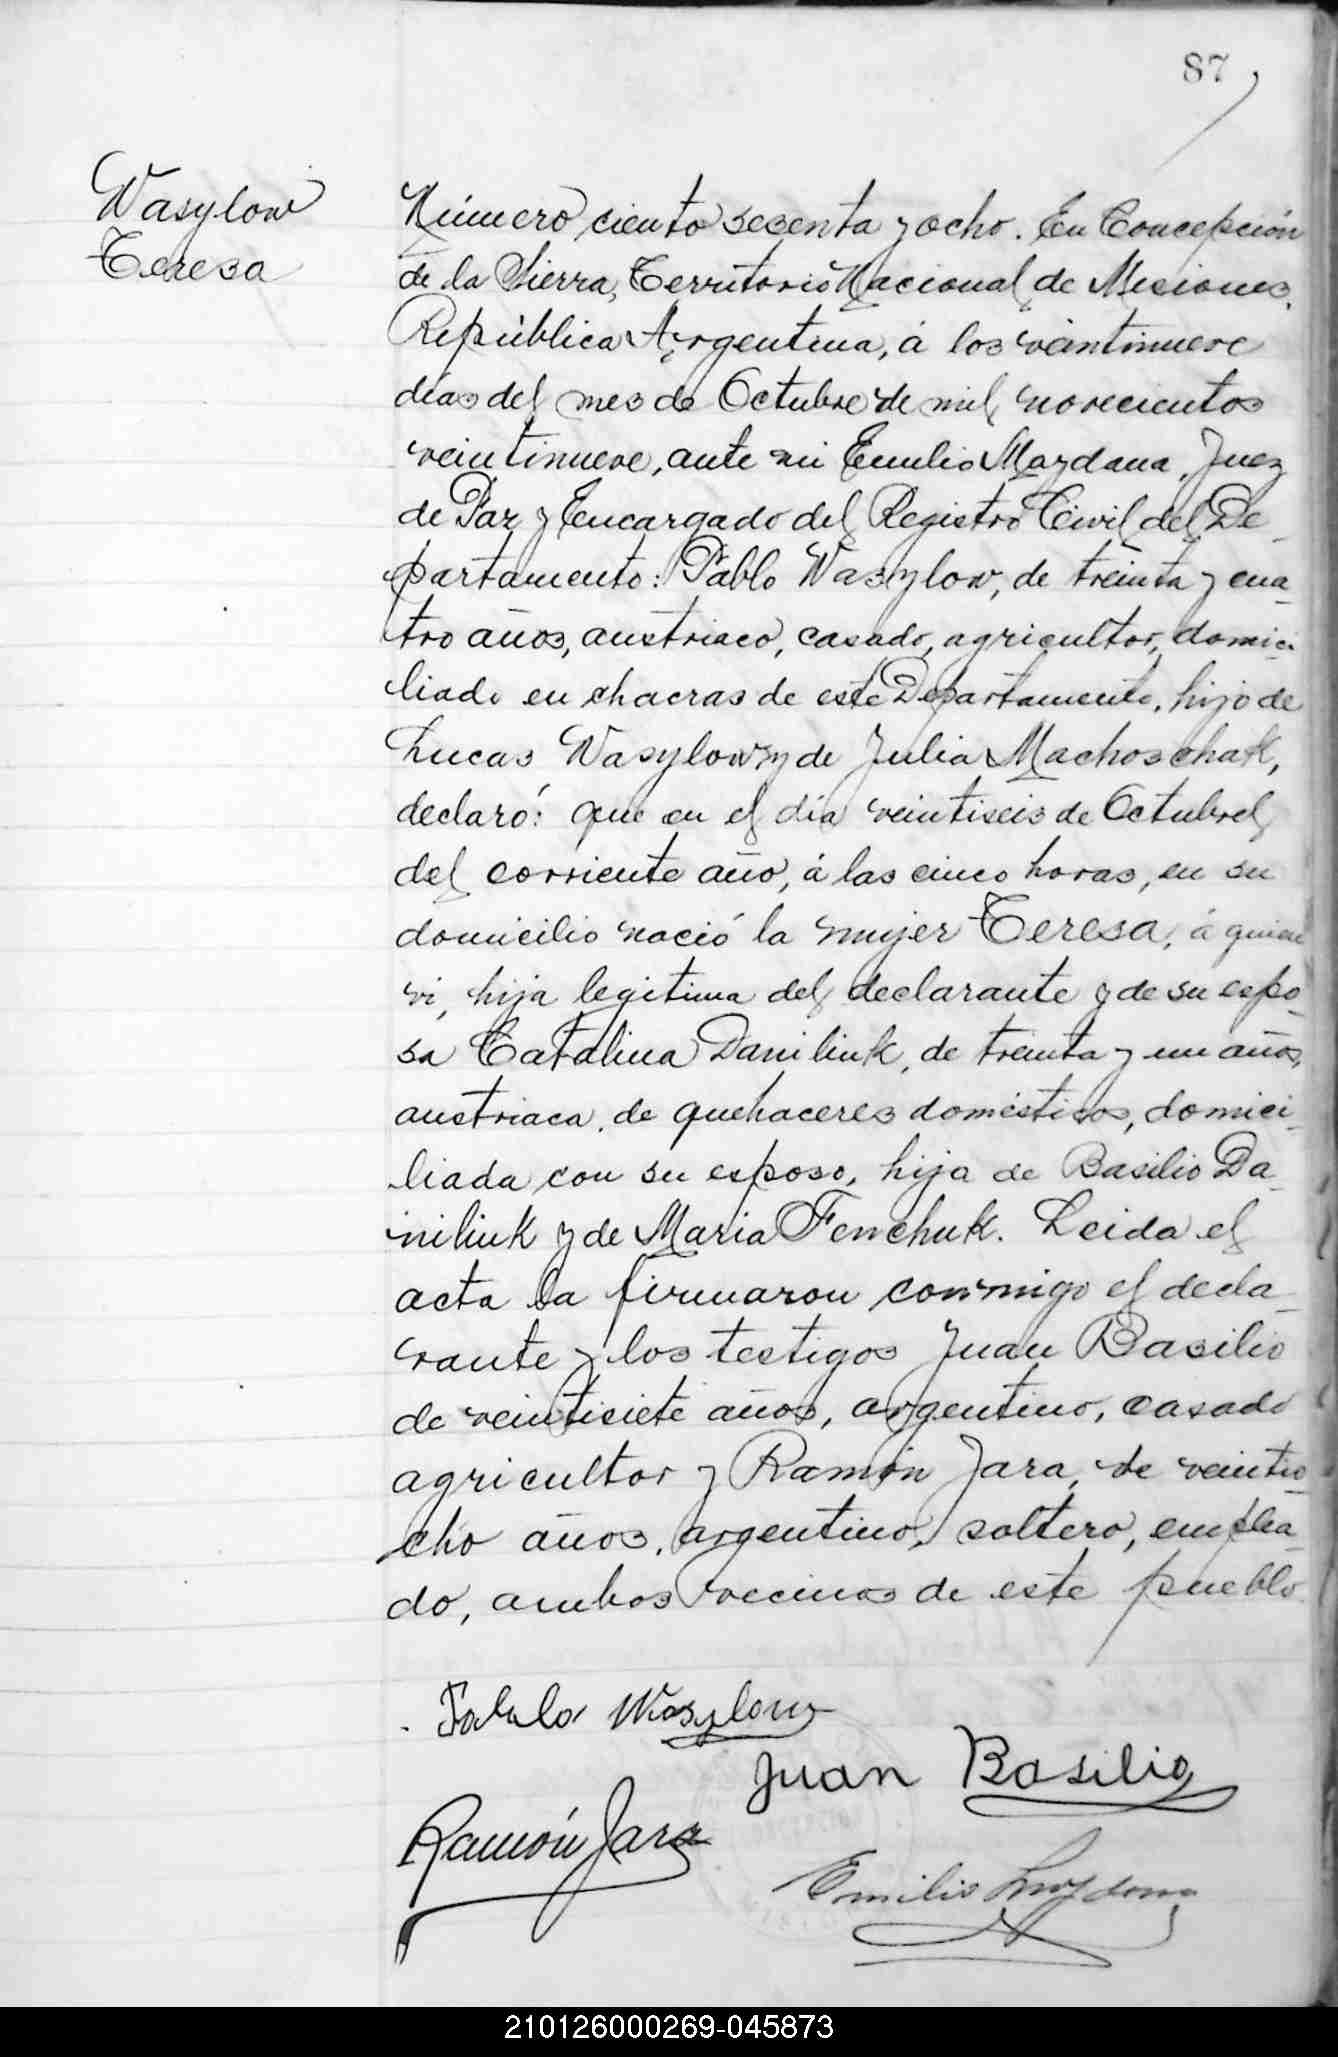 87
Wasylow
Teresa
Número ciento sesenta y ocho. En Concepción
de la Sierra, Territorio Nacional de Misiones,
República Argentina, á los veintinueve
días del mes de Octubre de mil novecientos
veintinueve, ante mi Emilio Maydana, Juez
de Paz y Encargado del Registro Civil del De-
partamento: Pablo Wasylow, de treinta y cua-
tro años, austriaco, casado, agricultor, domici-
liado en chacras de este Departamento, hijo de
Lucas Wasylow y de Julia Machoschak,
declaró: que en el día veintiseis de Octubre
del corriente año, á las cinco horas, en su
domicilio nació la mujer Teresa, á quien
vi, hija legitima del declarante y de su espo-
sa Catalina Daniliuk, de treinta y un años,
austriaca, de quehaceres domésticos, domici-
liada con su esposo, hija de Basilio Da-
niliuk y de Maria Fenchuk. Leida el
acta la firmaron conmigo el decla-
rante y los testigos Juan Basilio
de veintisiete años, argentino, casado
agricultor y Ramón Jara, de veintio-
cho años, argentino, soltero, emplea-
do, ambos vecinos de este pueblo.
Pablo Wasylow
Juan Basilio
Ramón Jara
Emilio Maydana
210126000269-045873